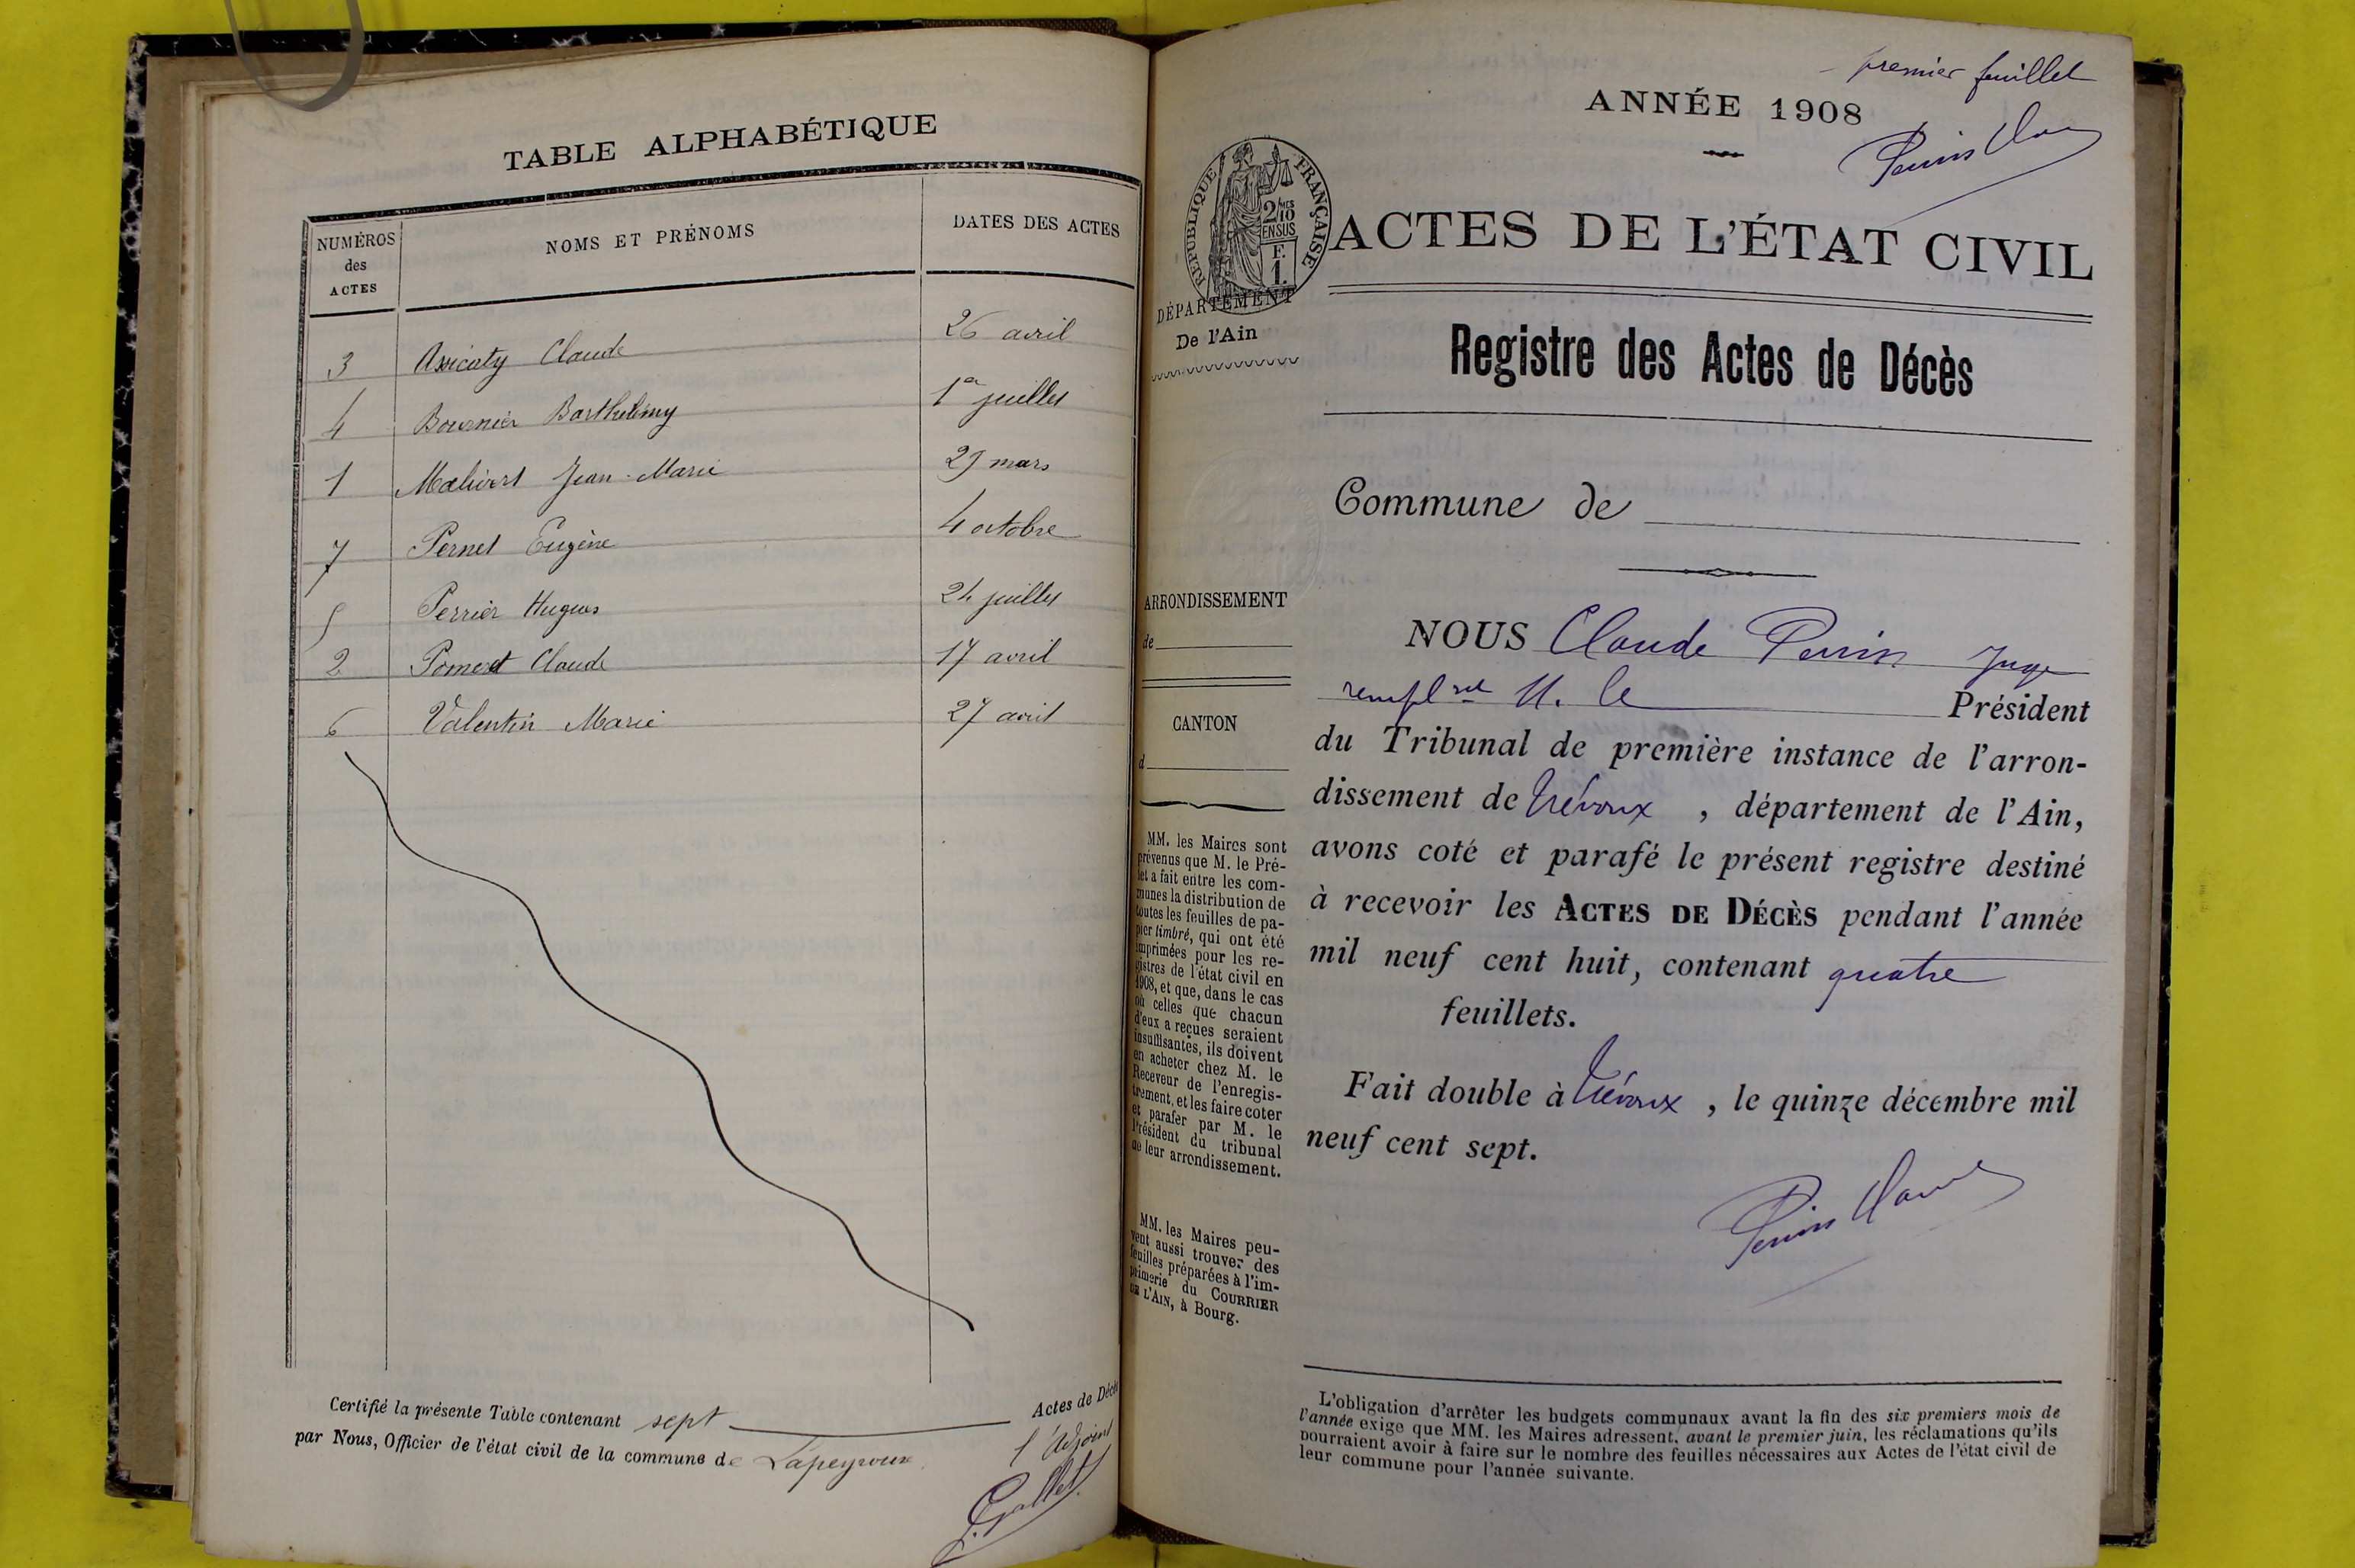 TABLE ALPHABÉTIQUE
NUMÉROS
des
ACTES
NOMS ET PRÉNOMS
DATES DES ACTES
3 Claude 26 avril
4 Bournier Barthélémy 1er juillet
1 Malivert Jean-Marie 29 mars
7 Pernet Eugène 4 octobre
5 Perrier Hugues 24 juillet
2 Claude 17 avril
6 Valentin Marie 27 avril
Certifié la présente Table contenant sept Actes de Décès
par Nous, Officier de l'état civil de la commune de Lapeyrouse
l'adjoint
premier feuillet
ANNÉE 1908
Perrin Claude
RÉPUBLIQUE FRANÇAISE
2/10
EN SUS
F.
1.
ACTES DE L'ÉTAT CIVIL
DÉPARTEMENT
De l'Ain
Registre des Actes de Décès
Commune de
ARRONDISSEMENT
de
CANTON
d
MM. les Maires sont
prévenus que M. le Pré-
fet a fait entre les com-
munes la distribution de
toutes les feuilles de pa-
pier timbré, qui ont été
imprimées pour les re-
gistres de l'état civil en
1908, et que, dans le cas
où celles que chacun
d'eux a reçues seraient
insuffisantes, ils doivent
en acheter chez M. le
Receveur de l'enregis-
trement, et les faire coter
et parafer par M. le
Président du tribunal
de leur arrondissement.
MM. les Maires peu-
vent aussi trouver des
feuilles préparées à l'im-
primerie du COURRIER
DE L'AIN, à Bourg.
NOUS Claude Perrin Juge
remplnt M. le Président
du Tribunal de première instance de l'arron-
dissement de Trévoux, département de l'Ain,
avons coté et parafé le présent registre destiné
à recevoir les ACTES DE DÉCÈS pendant l'année
mil neuf cent huit, contenant quatre
feuillets.
Fait double à Trévoux, le quinze décembre mil
neuf cent sept.
Perrin Claude
L'obligation d'arrêter les budgets communaux avant la fin des six premiers mois de
l'année exige que MM. les Maires adressent, avant le premier juin, les réclamations qu'ils
pourraient avoir à faire sur le nombre des feuilles nécessaires aux Actes de l'état civil de
leur commune pour l'année suivante.